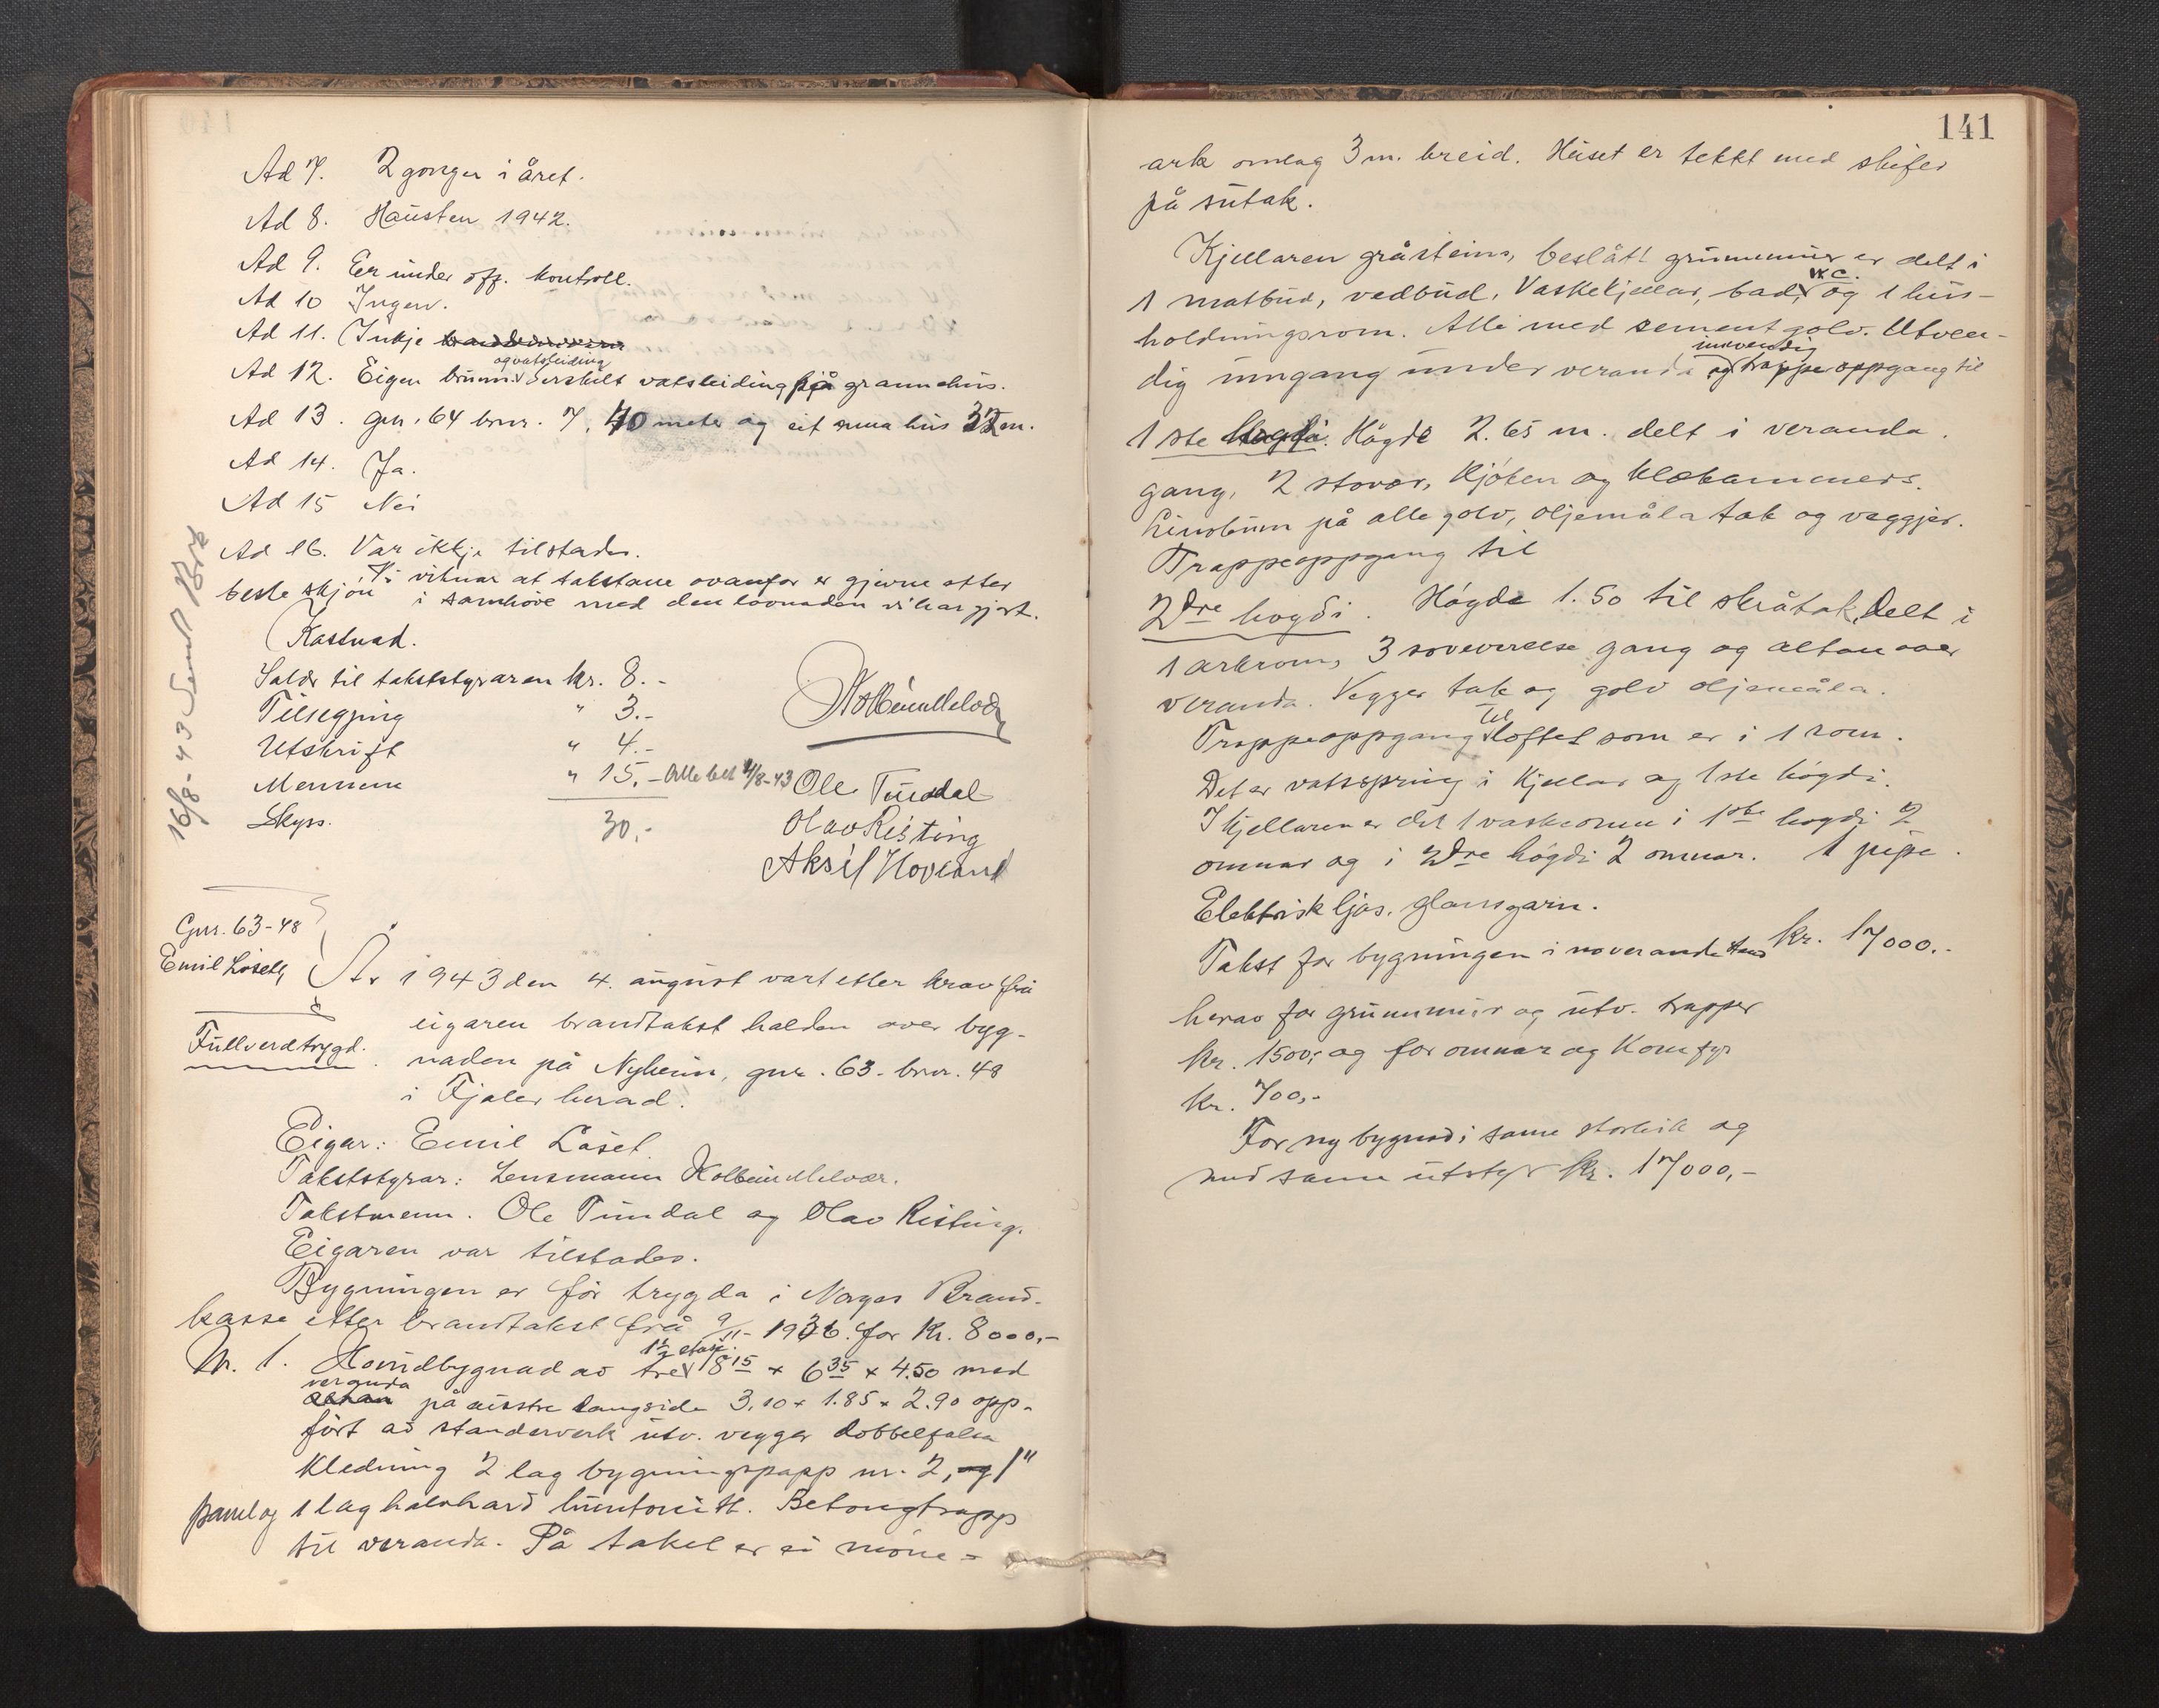 Ad 7. 2 gonger i året.
Ad 8. Hausten 1942.
Ad 9. Er under off. kontroll.
Ad 10 Ingen.
Ad 11. Inkje
og vatsleiding
Ad 12. Eigen brunn. Serskilt vatsleiding på grannehus.
Ad 13. gnr. 64 bnr. 7, 40 meter og eit sma hus 32 m.
Ad 14. Ja.
Ad 15 Nei
Ad 16. Var ikkje tilstades.
Vi vitnar at takstane ovanfor er gjevne etter
beste skjön i samhöve med den lovnaden vi har gjort.
Kostnad.
Salær til takststyraren kr. 8.-
Tilsegjing " 3.-
Utskrift " 4.-
Mennene " 15.- Alle bet 4/8-43
Skyss.
30.-
Kolbein Melvær
Ole Tundal
Olav Risting
Aksel Hovland
16/8-43 Sendt Br.k.
Gnr. 63-48
Emil Löset,
Fullverdtrygd.
År 1943 den 4. august vart etter krav frå
eigaren brandtakst halden over byg-
naden på Nyheim, gnr. 63. bnr. 48
i Fjaler herad.
Eigar: Emil Löset.
Takststyrar: Lensmann Kolbein Melvær.
Takstmenn. Ole Tundal og Olav Risting.
Eigaren var tilstades.
Bygningen er för trygda i Norges Brand-
kasse etter brandtakst frå 9/11-1936 for kr. 8000,-
1½ etasj.
Nr. 1. Hovudbygnad av tre 8 15 x 6 35 x 4.50 med
veranda
altan på austre langside 3.10 x 1.85 x 2.90 opp-
fört av standerverk utv. vegger dobbelfalsa
kledning 2 lag bygningspapp nr. 2, og 1"
panel og 1 lag halvhard huntonitt. Betongtrapp
til veranda. På taket er ei möne-
141
ark omlag 3 m. breid. Huset er tekkt med skifer
på sutak.
Kjellaren gråsteins, beslått grunnmur er delt i
W.C.
1 matbud, vedbud, Vaskekjellar, bad, og 1 hus-
holdningsrom. Alle med sementgolv. Utven-
innvendig
dig inngang under veranda og trappeoppgang til
1ste högdi. Högde 2.65 m. delt i veranda.
gang, 2 stover, Kjöken og klekammers.
Linoleum på alle golv, oljemåla tak og veggjer.
Trappeoppgang til
2dre högdi. Högde 1.50 til skråtak, Delt i
1 arkrom, 3 soveverelse gang og altan over
veranda. Vegger tak og golv oljemåla.
til
Trappeoppgang loftet som er i 1 rom.
Det er vatsspring i Kjellar og 1ste högdi.
I kjellaren er det 1 vaskeomn i 1ste högdi 2
omnar og i 2dre högdi 2 omnar. 1 pipe.
Elektrisk ljos,
Takst for bygningen i noverande stand kr. 17000.-
herav for grunnmur og utv. trapper
kr. 1500,- og for omnar og Komfyr
kr. 700,-
For ny bygnad i same storleik og
med same utstyr kr. 17000,-